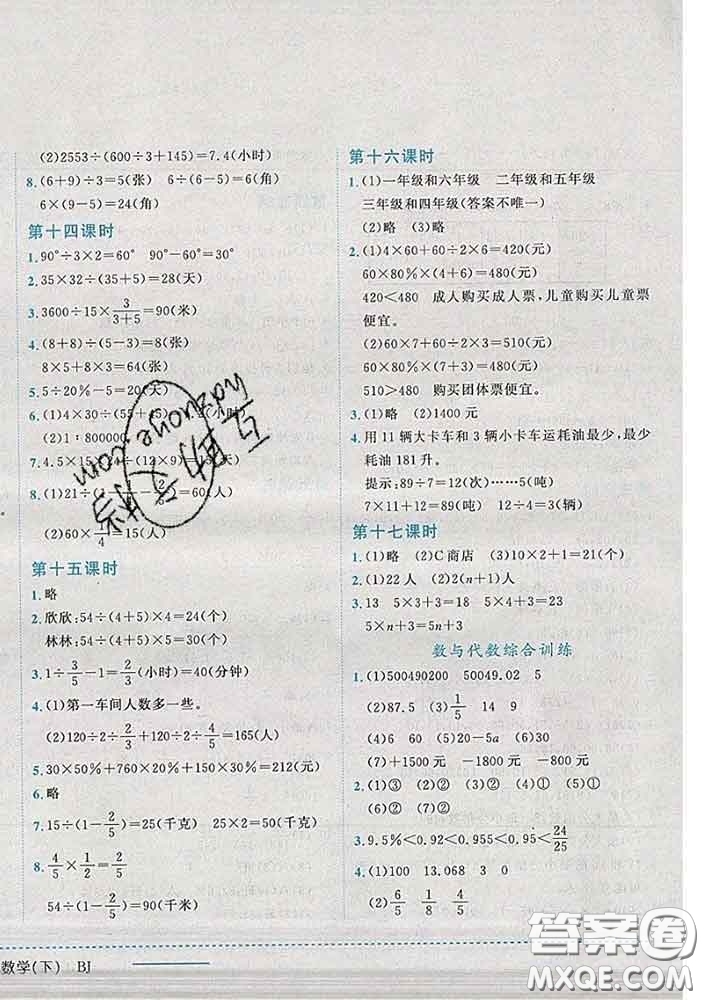 (2)2553÷(600÷3+145)=7.4(小时)
8.(6+9)÷3=5(张) 6÷(6-5)=6(角)
6×(9-5)=24(角)
第十四课时
1.90°÷3×2=60° 90°-60°=30°
2.35×32÷(35+5)=28(天)
3.3600÷15×3/(3+5)=90(米)
4.(8+8)÷(5-3)=8(张)
8×5+8×3=64(张)
5.5÷20%-5=20(天)
6.(1)4×30÷(55+45)
(小时)
(2)1∶800000
7.4.5×(12+9)÷(12×9)=15(天)
8.(1)21÷
=60(人)
(2)60×1/4=15(人)
第十五课时
1.略
2.欣欣:54÷(4+5)×4=24(个)
林林:54÷(4+5)×5=30(个)
3.1÷3/5-1=2/3(小时)=40(分钟)
4.(1)第一车间人数多一些。
(2)120-2÷2/3+120÷2/3-15=165(人)
5.30×50%+760×20%+150×30%=212(元)
6.略
7.15÷(1-2/5)=25(千克) 25×2=50(千克)
8.4/5×1/2=2/5
54÷(1-2/5)=90(千米)
第十六课时
1.(1)一年级和六年级 二年级和五年级
三年级和四年级(答案不唯一)
(2)略 (3)略
2.(1)4×60+60÷2×6=420(元)
60×80%×(4+6)=480(元)
420<480 成人购买成人票,儿童购买儿童票
便宜。
(2)60×7+60÷2×3=510(元)
60×80%×(7+3)=480(元)
510>480 购买团体票便宜。
3.(1)略 (2)1400元
4.用11辆大卡车和3辆小卡车运耗油最少,最少
耗油181升。
提示:89÷7=12(次)……5(吨)
7×11+12=89(吨) 12÷4=3(辆)
第十七课时
1.(1)略 (2)C商店 (3)10×2+1=21(元)
2.(1)22人 (2)2(n+1)人
3.13 5×5+3=28 5×4+3=23
5×n+3=5n+3
数与代数综合训练
1.(1)500490200 50049.02 5
(2)87.5 (3)1/5 14 9
(4)6 60 (5)20-5a (6)30
(7)+1500元 -1800元 -800元
2.(1)③ (2)② (3)② (4)① (5)①
(6)② (7)②
3.9.5%<0.92<0.955<0.95<24/25
4.(1)100 13.068 3
(2)6/5 1/8 4/5
数学(下) BJ
答案圈
MXQE.COM